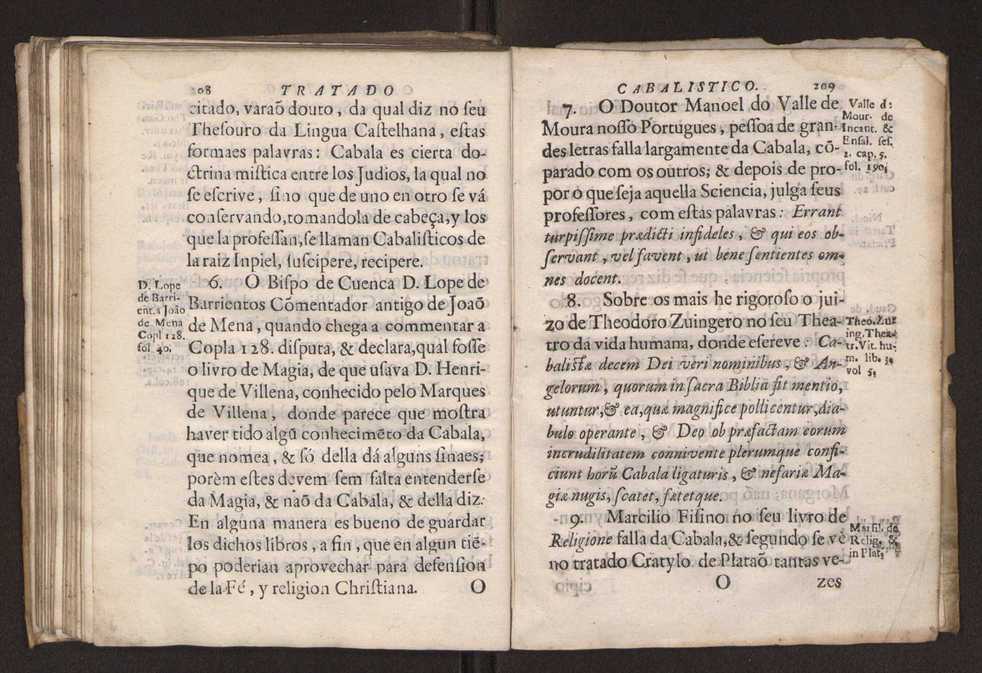 208 TRATADO
citado, varaõ douto, da qual diz no seu
Thesouro da Lingua Castelhana, estas
formaes palavras: Cabala es cierta do-
ctrina mistica entre los Judios, la qual no
se escrive, sino que de uno en otro se vá
conservando, tomandola de cabeça, y los
que la professan, se llaman Cabalisticos de
la raiz Inpiel, suscipere, recipere.
6. O Bispo de Cuenca D. Lope de
Barrientos Cõmentador antigo de Joaõ
de Mena, quando chega a commentar a
Copla 128. disputa, & declara, qual fosse
o livro de Magia, de que usava D. Henri-
que de Villena, conhecido pelo Marques
de Villena, donde parece que mostra
haver tido algũ conhecimẽto da Cabala,
que nomea, & só della dá alguns sinaes;
porèm estes devem sem falta entenderse
da Magia, & naõ da Cabala, & della diz.
En alguna manera es bueno de guardar
los dichos libros, a fin, que en algun tiẽ-
po poderian aprovechar para defension
de la Fé, y religion Christiana. O
D. Lope
de Barri-
ent. a João
de Mena
Copl 128.
fol 40.
CABALISTICO. 209
7. O Doutor Manoel do Valle de
Moura nosso Portugues, pessoa de gran-
des letras falla largamente da Cabala, cõ-
parado com os outros; & depois de pro-
por o que seja aquella Sciencia, julga seus
professores, com estas palavras: Errant
turpissime prædicti infideles, & qui eos ob-
servant, vel favent, ut bene sentientes om-
nes docent.
8. Sobre os mais he rigoroso o jui-
zo de Theodoro Zuingero no seu Thea-
tro da vida humana, donde escreve: Ca-
balistæ decem Dei veri nominibus, & An-
gelorum, quorum in sacra Biblia fit mentio,
utuntur, & ea, quæ magnifice pollicentur, dia-
bulo operante, & Deo ob præfactam eorum
incruditilitatem connivente plerumque confi-
ciunt horũ Cabala ligaturis, & nefariæ Ma-
giæ nugis, scatet, fætetque.
9. Marcilio Fisino no seu livro de
Religione falla da Cabala, & segundo se vè
no tratado Cratylo de Plataõ tantas ve-
O zes
Valle d:
Mour. de
Incant. &
Ensal. ses.
2. cap. 5.
fol. 190.
Theo. Zui
ing. Thea-
tr. Vit. hu-
m. lib. 3.
vol 5.
Marsil. de
Relig. &
in Plat.